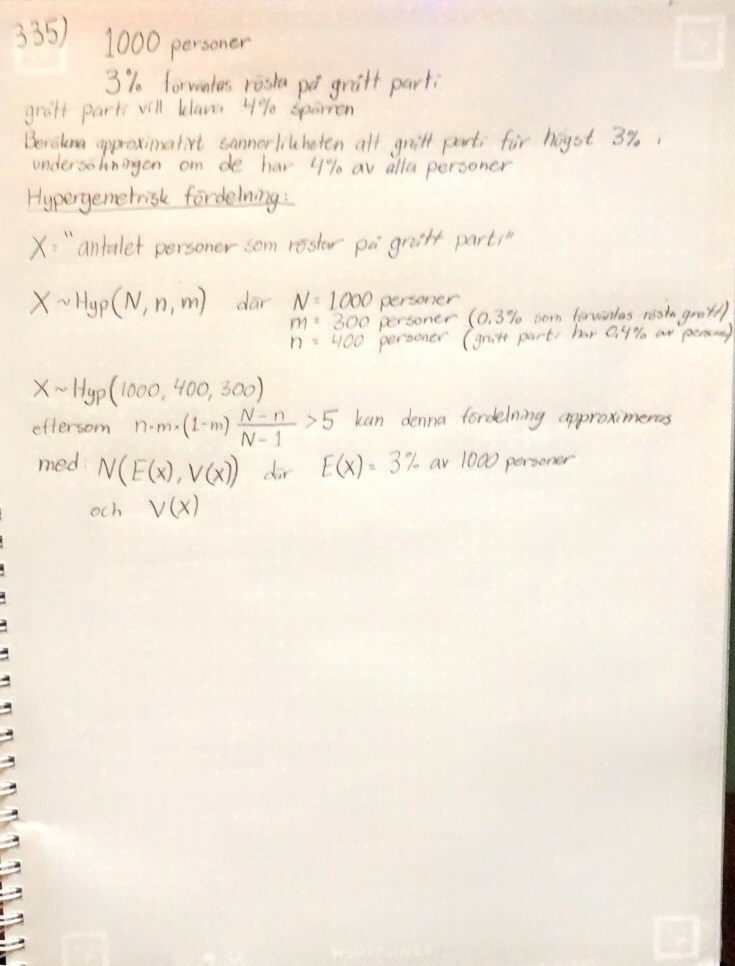 335) 1000 personer
3% förväntas rösta på grått parti
grått parti vill klara 4% spärren
Beräkna approximativt sannorlikheten att grått parti får högst 3% i
undersökningen om de har 4% av alla personer
Hypergemetrisk fördelning:
X = "antalet personer som röstar på grått parti"
X ~ Hyp(N, n, m) där N = 1000 personer
m = 300 personer (0.3% som förväntas rösta grått)
n = 400 personer (grått parti har 0,4% av personer)
X ~ Hyp(1000, 400, 300)
eftersom n·m·(1-m) (N-n)/(N-1) > 5 kan denna fördelning approximeras
med: N(E(x), V(x)) där E(x) = 3% av 1000 personer
och V(x)